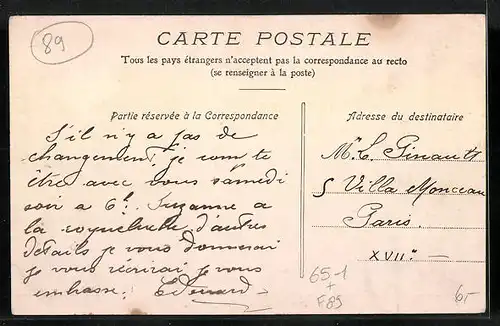 89
CARTE POSTALE
Tous les pays étrangers n'acceptent pas la correspondance au recto
(se renseigner à la poste)
Partie réservée à la Correspondance
S'il n'y a pas de
changement, je compte
être avec vous samedi
soir à 6h. Suzanne a
la coqueluche d'autres
détails je vous donnerai
je vous écrirai je vous
embrasse. Edouard
Adresse du destinataire
Mr. C. Pinault
5 Villa Monceau
Paris.
XVIIe
65-1
+
F89